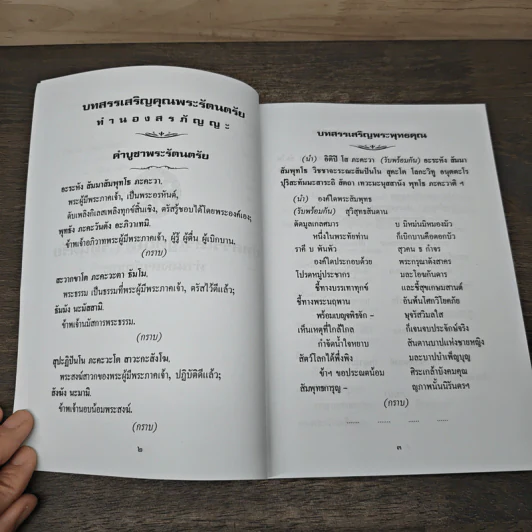 บทสรรเสริญคุณพระรัตนตรัย
ทำนองสรภัญญะ
คำบูชาพระรัตนตรัย
อะระหัง สัมมาสัมพุทโธ ภะคะวา.
พระผู้มีพระภาคเจ้า, เป็นพระอรหันต์,
ดับเพลิงกิเลสเพลิงทุกข์สิ้นเชิง, ตรัสรู้ชอบได้โดยพระองค์เอง;
พุทธัง ภะคะวันตัง อะภิวาเทมิ.
ข้าพเจ้าอภิวาทพระผู้มีพระภาคเจ้า, ผู้รู้ ผู้ตื่น ผู้เบิกบาน.
(กราบ)
สะวากขาโต ภะคะวะตา ธัมโม.
พระธรรม เป็นธรรมที่พระผู้มีพระภาคเจ้า, ตรัสไว้ดีแล้ว;
ธัมมัง นะมัสสามิ.
ข้าพเจ้านมัสการพระธรรม.
(กราบ)
สุปะฏิปันโน ภะคะวะโต สาวะกะสังโฆ.
พระสงฆ์สาวกของพระผู้มีพระภาคเจ้า, ปฏิบัติดีแล้ว;
สังฆัง นะมามิ.
ข้าพเจ้านอบน้อมพระสงฆ์.
(กราบ)
๒
บทสรรเสริญพระพุทธคุณ
(นำ) อิติปิ โส ภะคะวา (รับพร้อมกัน) อะระหัง สัมมา
สัมพุทโธ วิชชาจะระณะสัมปันโน สุคะโต โลกะวิทู อนุตตะโร
ปุริสะทัมมะสาระถิ สัตถา เทวะมะนุสสานัง พุทโธ ภะคะวาติ ฯ
(นำ) องค์ใดพระสัมพุทธ
(รับพร้อมกัน) สุวิสุทธสันดาน
ตัดมูลเกลสมาร บ มิหม่นมิหมองมัว
หนึ่งในพระทัยท่าน ก็เบิกบานคือดอกบัว
ราคี บ พันพัว สุวคน ธ กำจร
องค์ใดประกอบด้วย พระกรุณาดังสาคร
โปรดหมู่ประชากร มละโอฆกันดาร
ชี้ทางบรรเทาทุกข์ และชี้สุขเกษมสานต์
ชี้ทางพระนฤพาน อันพ้นโศกวิโยคภัย
พร้อมเบญจพิธจัก – ษุจรัสวิมลใส
เห็นเหตุที่ใกล้ไกล ก็เจนจบประจักษ์จริง
กำจัดน้ำใจหยาบ สันดานบาปแห่งชายหญิง
สัตว์โลกได้พึ่งพิง มละบาปบำเพ็ญบุญ
ข้าฯ ขอประณตน้อม ศิระเกล้าบังคมคุณ
สัมพุทธการุญ – ญภาพนั้นนิรันดรฯ
(กราบ)
...... ...... ...... ......
๓